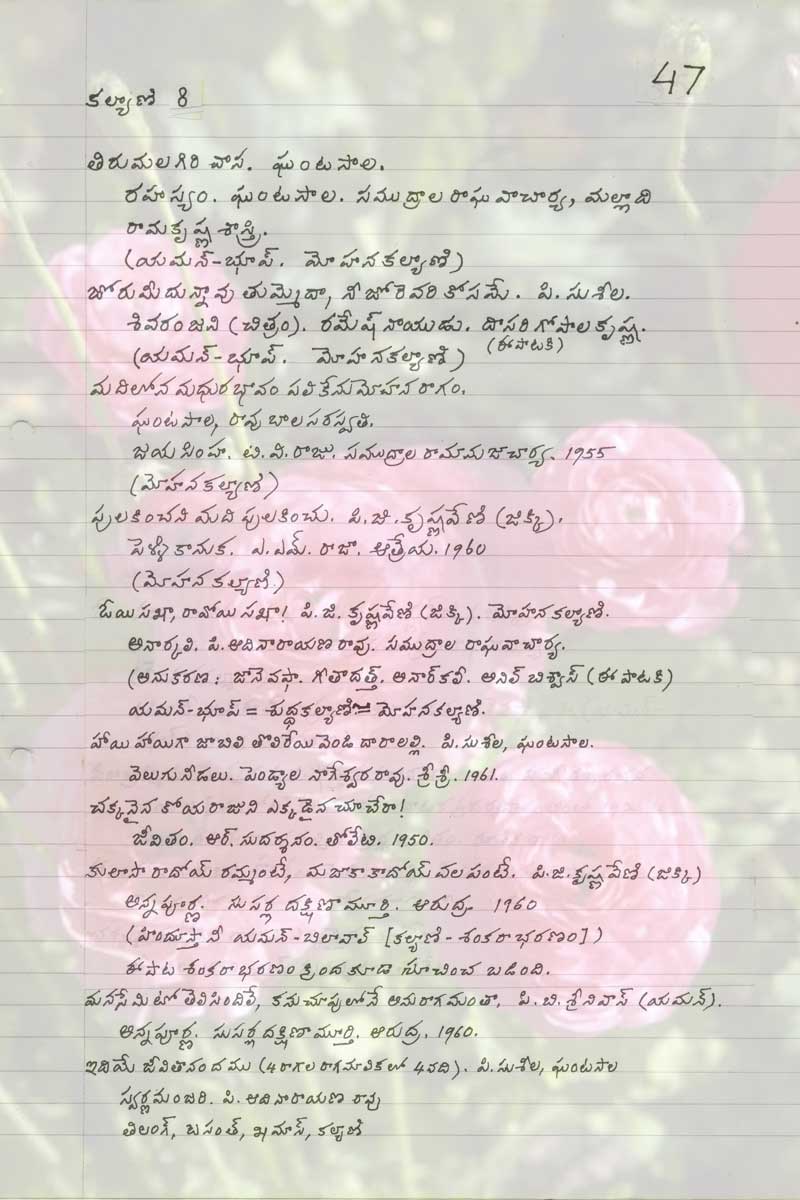 47
కల్యాణి 8
తిరుమలగిరి వాస. ఘంటసాల.
రహస్యం. ఘంటసాల. సముద్రాల రాఘవాచార్య, మల్లాది
రామకృష్ణ శాస్త్రి.
(యమన్-భూప్. మోహనకల్యాణి)
జోరుమీదున్నావు తుమ్మెదా, నీ జోరెవరి కోసమే. పి. సుశీల.
శివరంజని (చిత్రం). రమేష్ నాయుడు. దాసరి గోపాల కృష్ణ.
(ఈపాటకి)
(యమన్-భూప్. మోహనకల్యాణి)
మదిలోన మధుర భావం పలికేను మోహన రాగం.
ఘంటసాల, రావు బాల సరస్వతి.
జయసింహ. టి. వి. రాజు. సముద్రాల రామానుజాచార్య. 1955
(మోహనకల్యాణి)
పులకించని మది పులకించు. పి. జి. కృష్ణవేణి (జిక్కి).
పెళ్ళి కానుక. ఎ. ఎమ్. రాజా. ఆత్రేయ. 1960
(మోహన కల్యాణి.)
ఓయి సఖా, రావోయి సఖా! పి. జి. కృష్ణవేణి (జిక్కి). మోహనకల్యాణి.
అనార్కలి. పి. ఆదినారాయణ రావు. సముద్రాల రాఘవాచార్య.
(అనుకరణ: జానెవఫా. గీతాదత్. అనార్కలీ. అనిల్ బిశ్వాస్ (ఈ పాటకి)
యమన్-భూప్ = శుద్ధకల్యాణి = మోహనకల్యాణి.
హాయి హాయిగా జాబిలి తొలిరేయి వెండి దారాలల్లి. పి. సుశీల, ఘంటసాల.
వెలుగు నీడలు. పెండ్యాల నాగేశ్వర రావు. శ్రీశ్రీ. 1961.
చక్కనైన కోయరాజుని ఎక్కడైన చూచేరా!
జీవితం. ఆర్. సుదర్శనం. తోలేటి. 1950.
కులాసా రాదోయ్ రమ్మంటే, మజాకా కాదోయ్ వలపంటే. పి. జి. కృష్ణవేణి (జిక్కి)
అన్నపూర్ణ. సుసర్ల దక్షిణామూర్తి. ఆరుద్ర. 1960
(హిందుస్తానీ యమన్-బిలావాల్ [కల్యాణి - శంకరాభరణం])
ఈపాట శంకరాభరణం క్రింద కూడా సూచించ బడింది.
మనసేమిటో తెలిసిందిలే, కనుచూపులోనే అనురాగమంతా. పి. బి. శ్రీనివాస్ (యమన్).
అన్నపూర్ణ. సుసర్ల దక్షిణామూర్తి. ఆరుద్ర. 1960.
ఇదియే జీవితానందము (4 రాగాల రాగమాలికలో 4వది). పి. సుశీల, ఘంటసాల
స్వర్ణమంజరి. పి. ఆదినారాయణ రావు
తిలంగ్, బసంత్, ఖమాస్, కల్యాణి